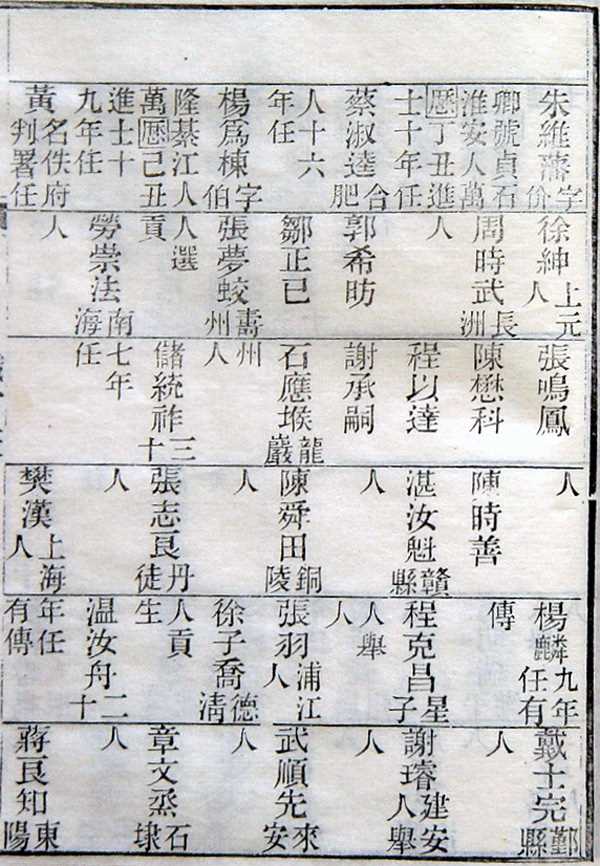 朱維藩字价
卿號貞石淮安人萬
曆丁丑進士十年任
蔡淑逵合肥
人十六年任
楊為棟字伯
隆綦江人萬曆己丑
進士十九年任
黃名佚府判署任
徐紳上元人
周時武長洲
人
郭希昉
鄒正已
張夢蛟壽州
人選貢
勞崇法南海
人
張鳴鳳
陳懋科
程以達
謝承嗣
石應堠龍巖
州人
儲統祚三十
七年任
人
陳時善
湛汝魁贛縣
人
陳舜田銅陵
人
張志良丹徒
人
樊漢上海人
楊麟九年任有
傳
程克昌星子
人舉人
張羽浦江人
徐子喬德清
人貢生
温汝舟二十
年任有傳
戴士完鄞縣
人
謝璿建安人舉
人
武順先來安
人
章文烝石埭
人
蔣良知東陽